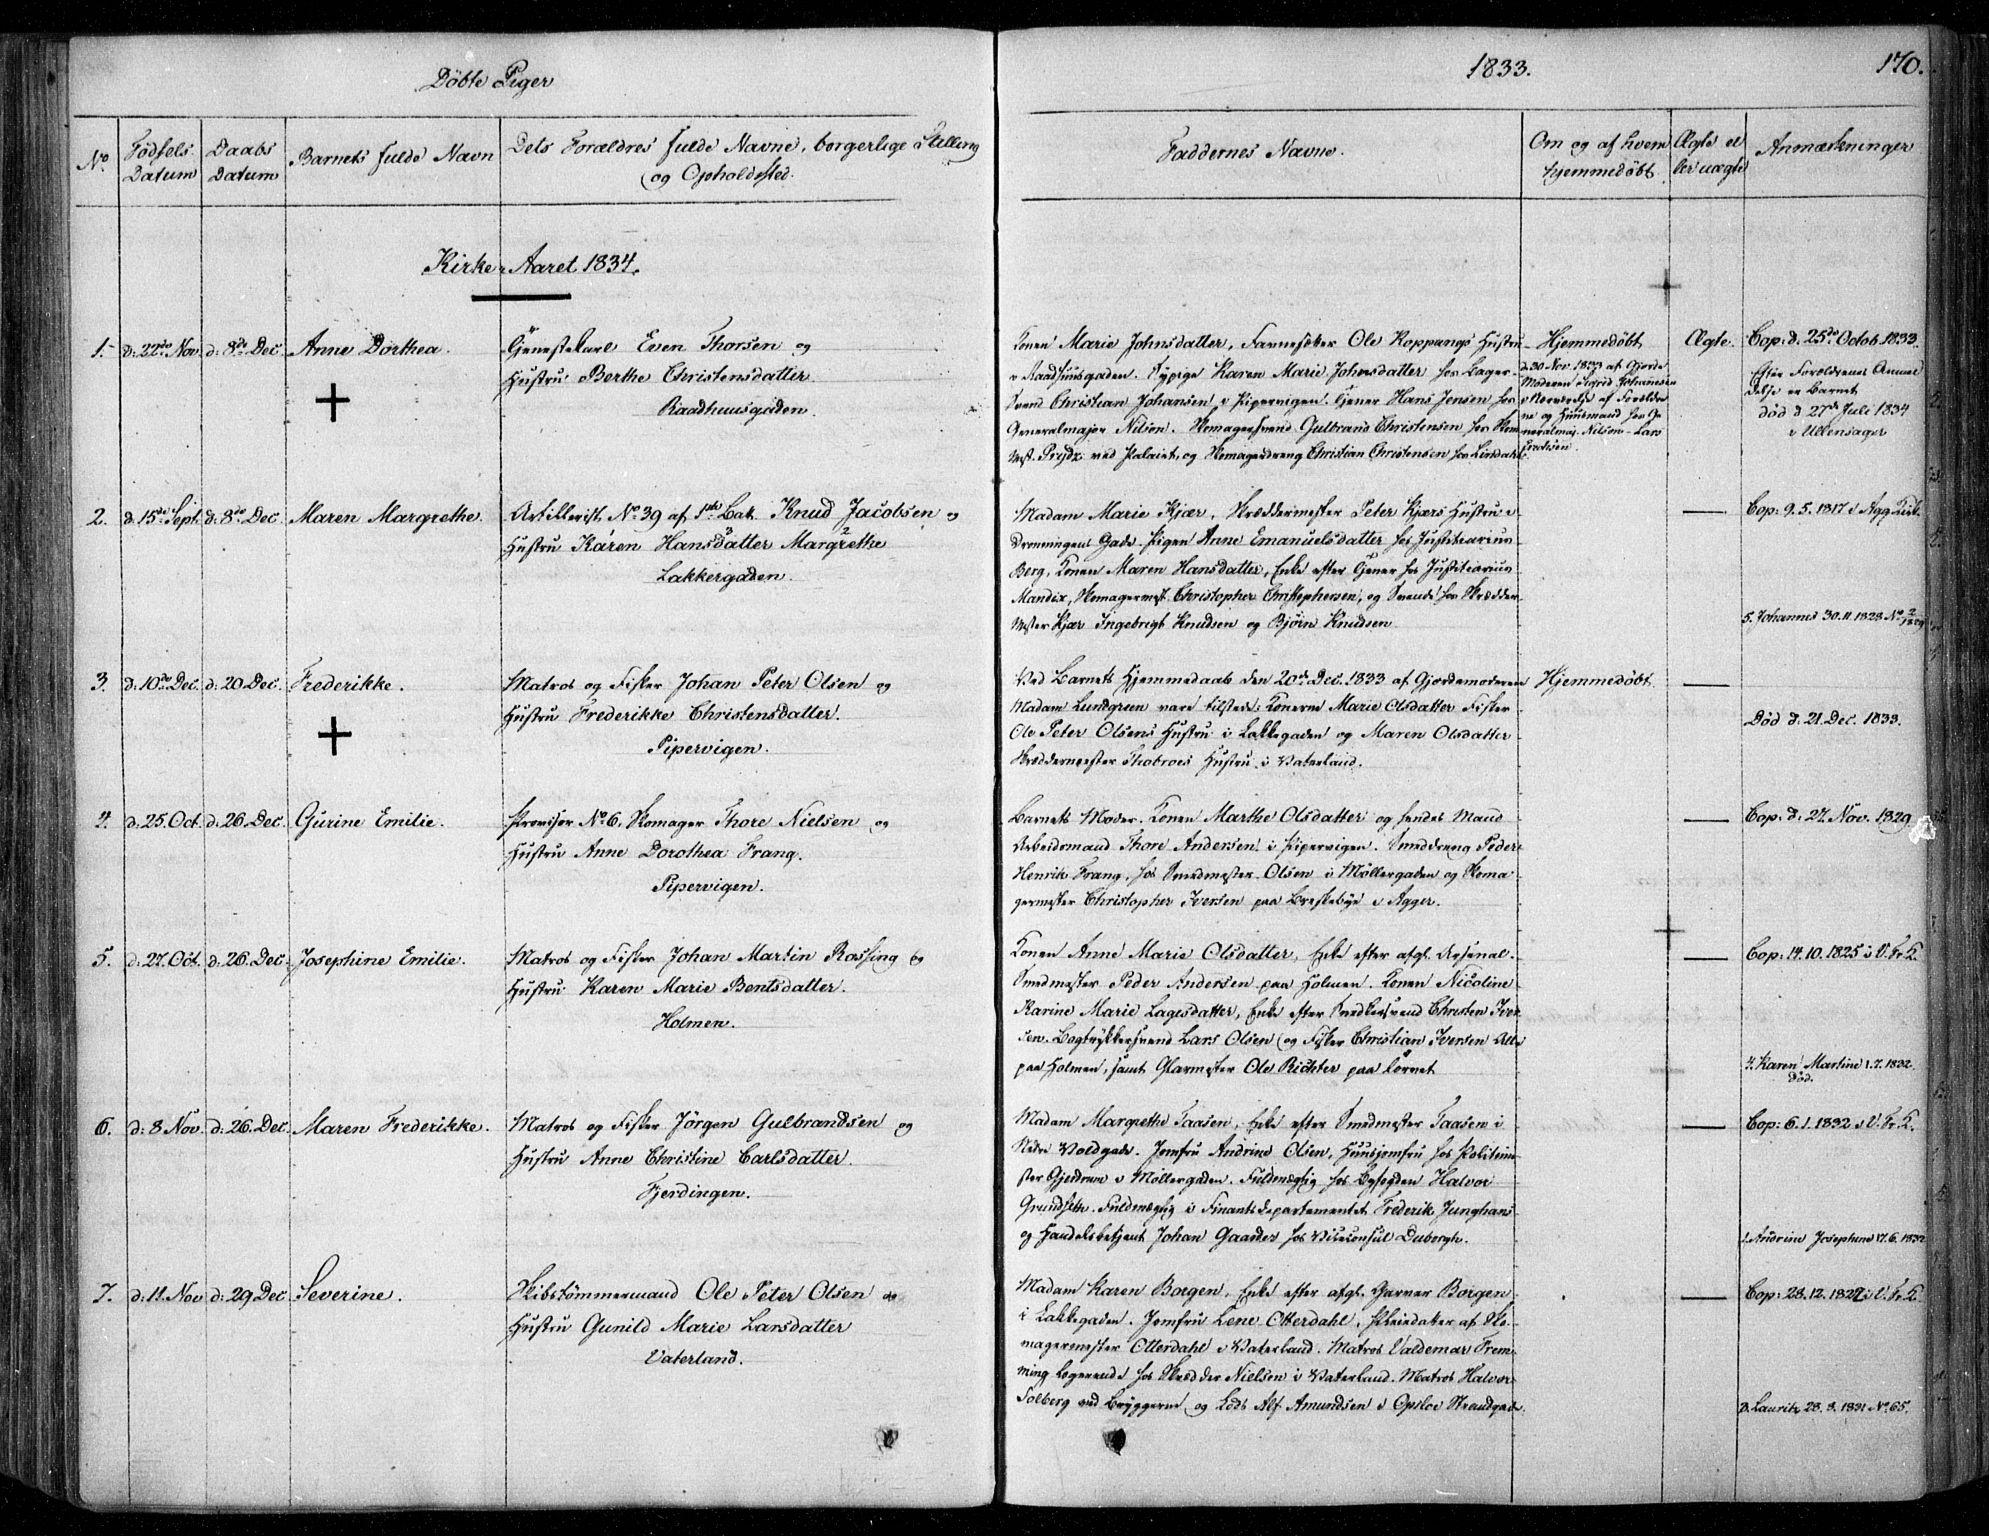 Döbte Piger
1833.
170.
No.
Födsels Datum
Daabs Datum
Barnets fulde Navn
Dets Forældres fulde Navne, borgerlige Stilling
og Opholdsted.
Faddernes Navne.
Om og af hvem hjemmedöbt.
Ægte eller uægte
Anmærkninger
Kirke-Aaret 1834.
1. d. 22de Nov. d. 8de Dec. Anne Dorthea.
Tjenestekarl Even Thorsen og
Hustru Berthe Christensdatter.
Raadhuusgaden.
Konen Marie Johnsdatter, Ole Koppangs Hustru
i Raadhuusgaden. Karen Marie Johnsdatter hos Lager-
Svend Christian Johansen i Pipervigen. Tjener Hans Jensen hos
Generalmajor Nilsen. Skomagersvend Gulbrand Christensen hos Skom.
Mest. Prydz ved Palaiet, og Skomagerdreng Christian Christensen hos Lindahl.
Hjemmedöbt
d. 30 Nov. 1833 af Gjorde-
Moderen Sigrid Johannesen
i Nærværelse af Forældre
ne og Huusmand hos Ge
neralmaj. Nilsen - Lars
Ægte.
Cop: d. 25de Octob. 1833.
Efter Forældrenes Anmel
delse er Barnet
död d. 27de Juli 1834
i Ullensager
2. d. 15de Sept. d. 8de Dec. Maren Margrethe.
Artillerist No. 39 af 1ste Bat. Knud Jacobsen og
Hustru Karen Hansdatter Margrethe
Lakkergaden.
Madam Marie Kjær, Skræddermester Peter Kjærs Hustru i
Dronningens Gade. Pigen Anne Emanuelsdatter hos Justitiarius
Berg, Konen Maren Hansdatter, Enke efter Tjener hos Justitiarius
Mandix, Skomagermest. Christopher Christophersen, og Svende hos Skrædder-
Mester Kjær Ingebrigt Knudsen og Bjørn Knudsen.
Cop: 9. 5. 1817 i Agg. Kirk.
5. Johannes 30. 11. 1828 No. 2/1829
3. d. 10de Dec. d. 20 Dec. Frederikke.
Matros og Fisker Johan Peter Olsen og
Hustru Frederikke Christensdatter.
Pipervigen.
Ved Barnets Hjemmedaab den 20de Dec. 1833 af Gjordemoderen
Madam Lundgreen vare tilstede: Konerne Marie Olsdatter Fisker
Ole Peter Olsens Hustru i Lakkegaden og Maren Olsdatter
Skræddermester Thobroes Hustru i Vaterland.
Hjemmedöbt.
Död d. 21. Dec. 1833.
4. d. 25. Oct. d. 26. Dec. Gurine Emilie.
No. 6. Skomager Thore Nielsen og
Hustru Anne Dorothea Frang.
Pipervigen.
Barnets Moder. Konen Marthe Olsdatter og hendes Mand
Arbeidsmand Thore Andersen i Pipervigen. Smeddreng Peder
Henrik Frang, hos Smedmester Olsen i Möllergaden og Skoma
germester Christopher Iversen paa Breskebye i Agger.
Cop: d. 27. Nov. 1829.
5. d. 27. Oct. d. 26. Dec. Josephine Emilie.
Matros og Fisker Johan Martin Rossing og
Hustru Karen Marie Bentsdatter.
Holmen.
Konen Anne Marie Olsdatter, Enke efter afgl. Arsenal-
Smedmester Peder Andersen paa Holmen. Konen Nicoline
Karine Marie Lagesdatter, Enke efter Snedkersvend Christen Iver
sen. Bogtrykkersvend Lars Olsen og Fisker Christian Iversen Alle
paa Holmen, samt Glarmester Ole Richter paa Tørnet
Cop: 14. 10. 1825 i V. Fr. K.
4. Karen Martine 1. 7. 1832.
död.
6. d. 8 Nov. d. 26. Dec. Maren Frederikke.
Matros og Fisker Jörgen Gulbrandsen og
Hustru Anne Christine Carlsdatter.
Fjerdingen.
Madam Margrethe Taasen, Enke efter Smedmester Taasen i
Nedre Voldgade. Jomfru Andrine Olsen, Huusjomfru hos Politime-
ster Gjerdrum i Möllergaden. Fuldmægtig hos Byfogden Halvor
Grundseth. Fuldmægtig i Finantsdepartementet Frederik Junghans
og Handelsbetjent Johan Gaarder hos Viceconsul Duborgh.
Cop: 6. 1. 1832 i V. Fr. K.
1. Andrine Josephine 17. 6. 1832
7. d. 11. Nov d. 29 Dec Severine.
Skibstömmermand Ole Peter Olsen og
Hustru Gunild Marie Larsdatter
Vaterland.
Madam Karen Borgen, Enke efter afgl. Garver Borgen
i Lakkegaden. Jomfru Lene Otterdahl, Pleiedatter af Sko-
magermester Otterdahl i Vaterland. Matros Valdemar Frem-
ming Logerende hos Skrædder Nielsen i Vaterland. Matros Halvor
Solberg ved Bryggerne og Lods Alf Amundsen i Opsloe Strandgade.
Cop: 28. 12. 1827 i V. Fr. K.
3. Lauritz 28. 3. 1831 No. 65.